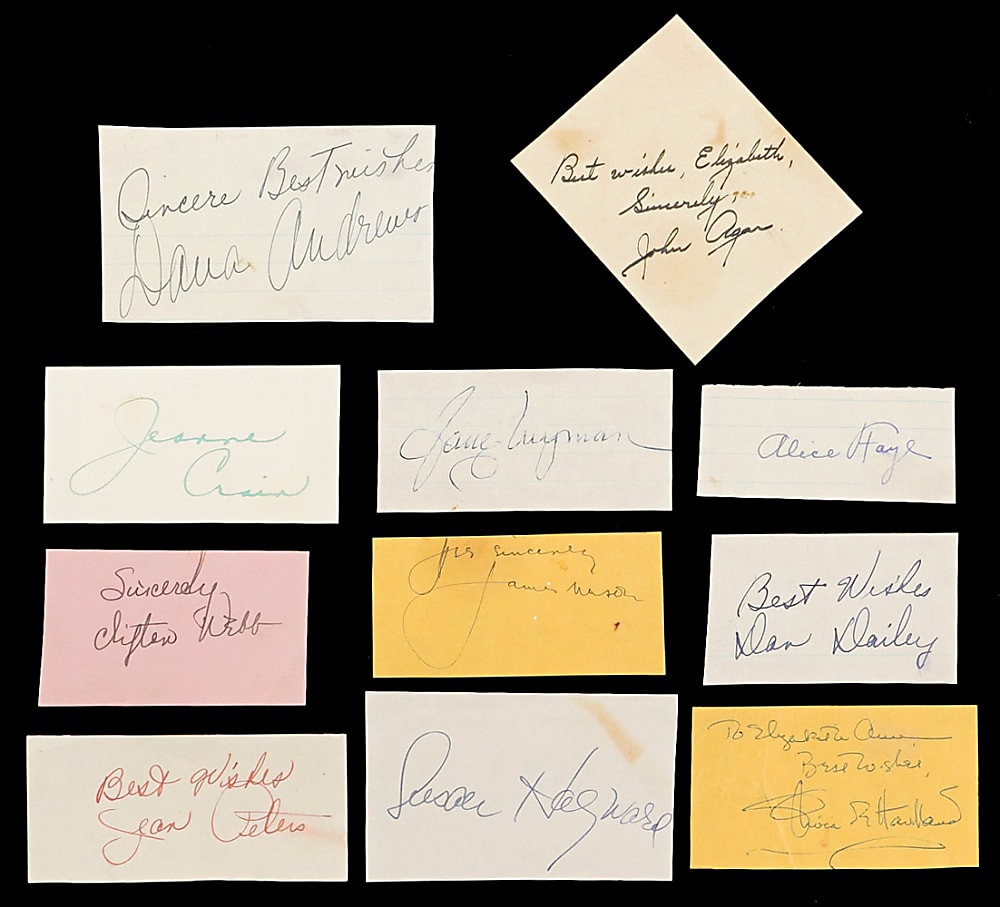 Sincere Best wishes
Dana Andrews
Best wishes, Elizabeth,
Sincerely,
John Agar
Jeanne
Crain
Jane Wyman
Alice Faye
Sincerely,
Clifton Webb
Yrs sincerely
James Mason
Best Wishes
Dan Dailey
Best Wishes
Jean Peters
Susan Hayward
To Elizabeth Ann
Best wishes,
Olivia de Havilland